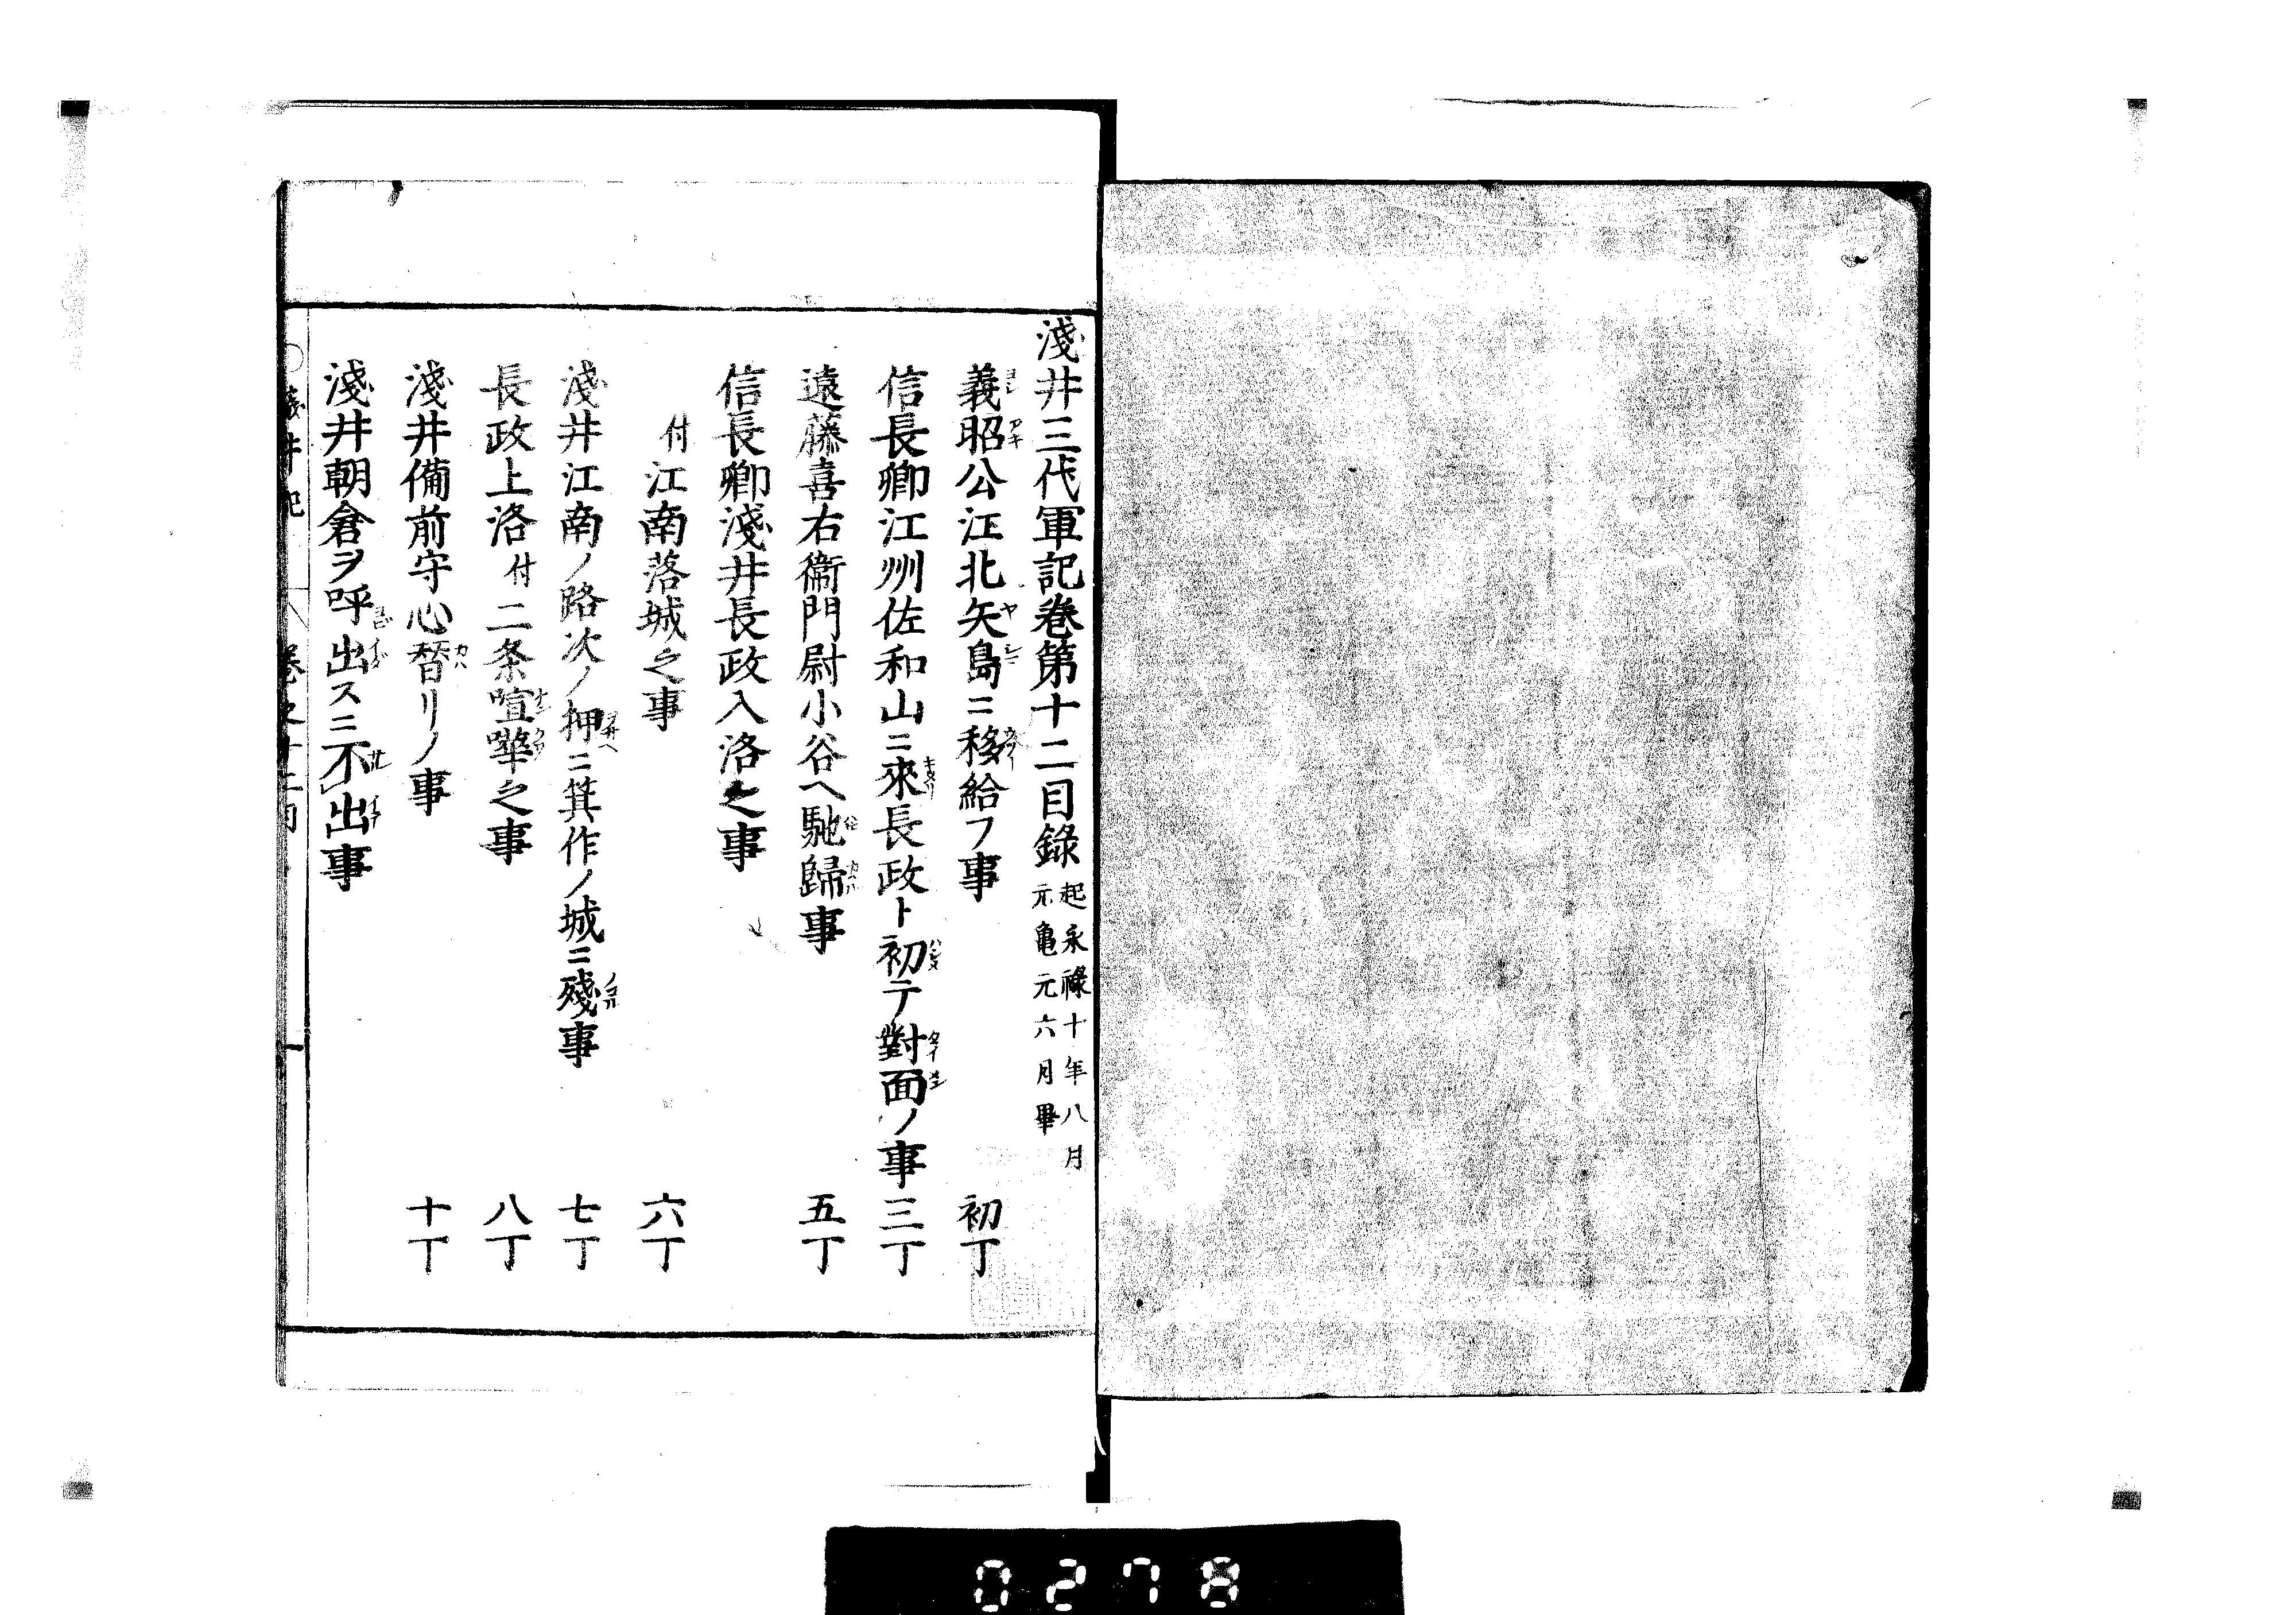 淺井三代軍記卷第十二目錄 起永祿十年八月
元亀元六月畢
義昭公江北矢島ニ移給フ事 初丁
信長卿江州佐和山ニ來長政ト初テ對面ノ事 三丁
遠藤喜右衞門尉小谷ヘ馳歸事 五丁
信長卿淺井長政入洛之事
付江南落城之事 六丁
淺井江南ノ路次ノ押ニ箕作ノ城ニ殘事 七丁
長政上洛付二条喧嘩之事 八丁
淺井備前守心替リノ事 十丁
淺井朝倉ヲ呼出スニ不出事
淺井記 卷之十二目 一
0278